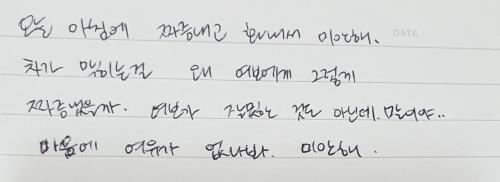 오늘 아침에 짜증내고 화내서 미안해. DATE
차가 막히는걸 왜 여보에게 그렇게
짜증냈을까. 여보가 잘못한 것도 아닌데.말이야..
마음에 여유가 없나봐. 미안해.